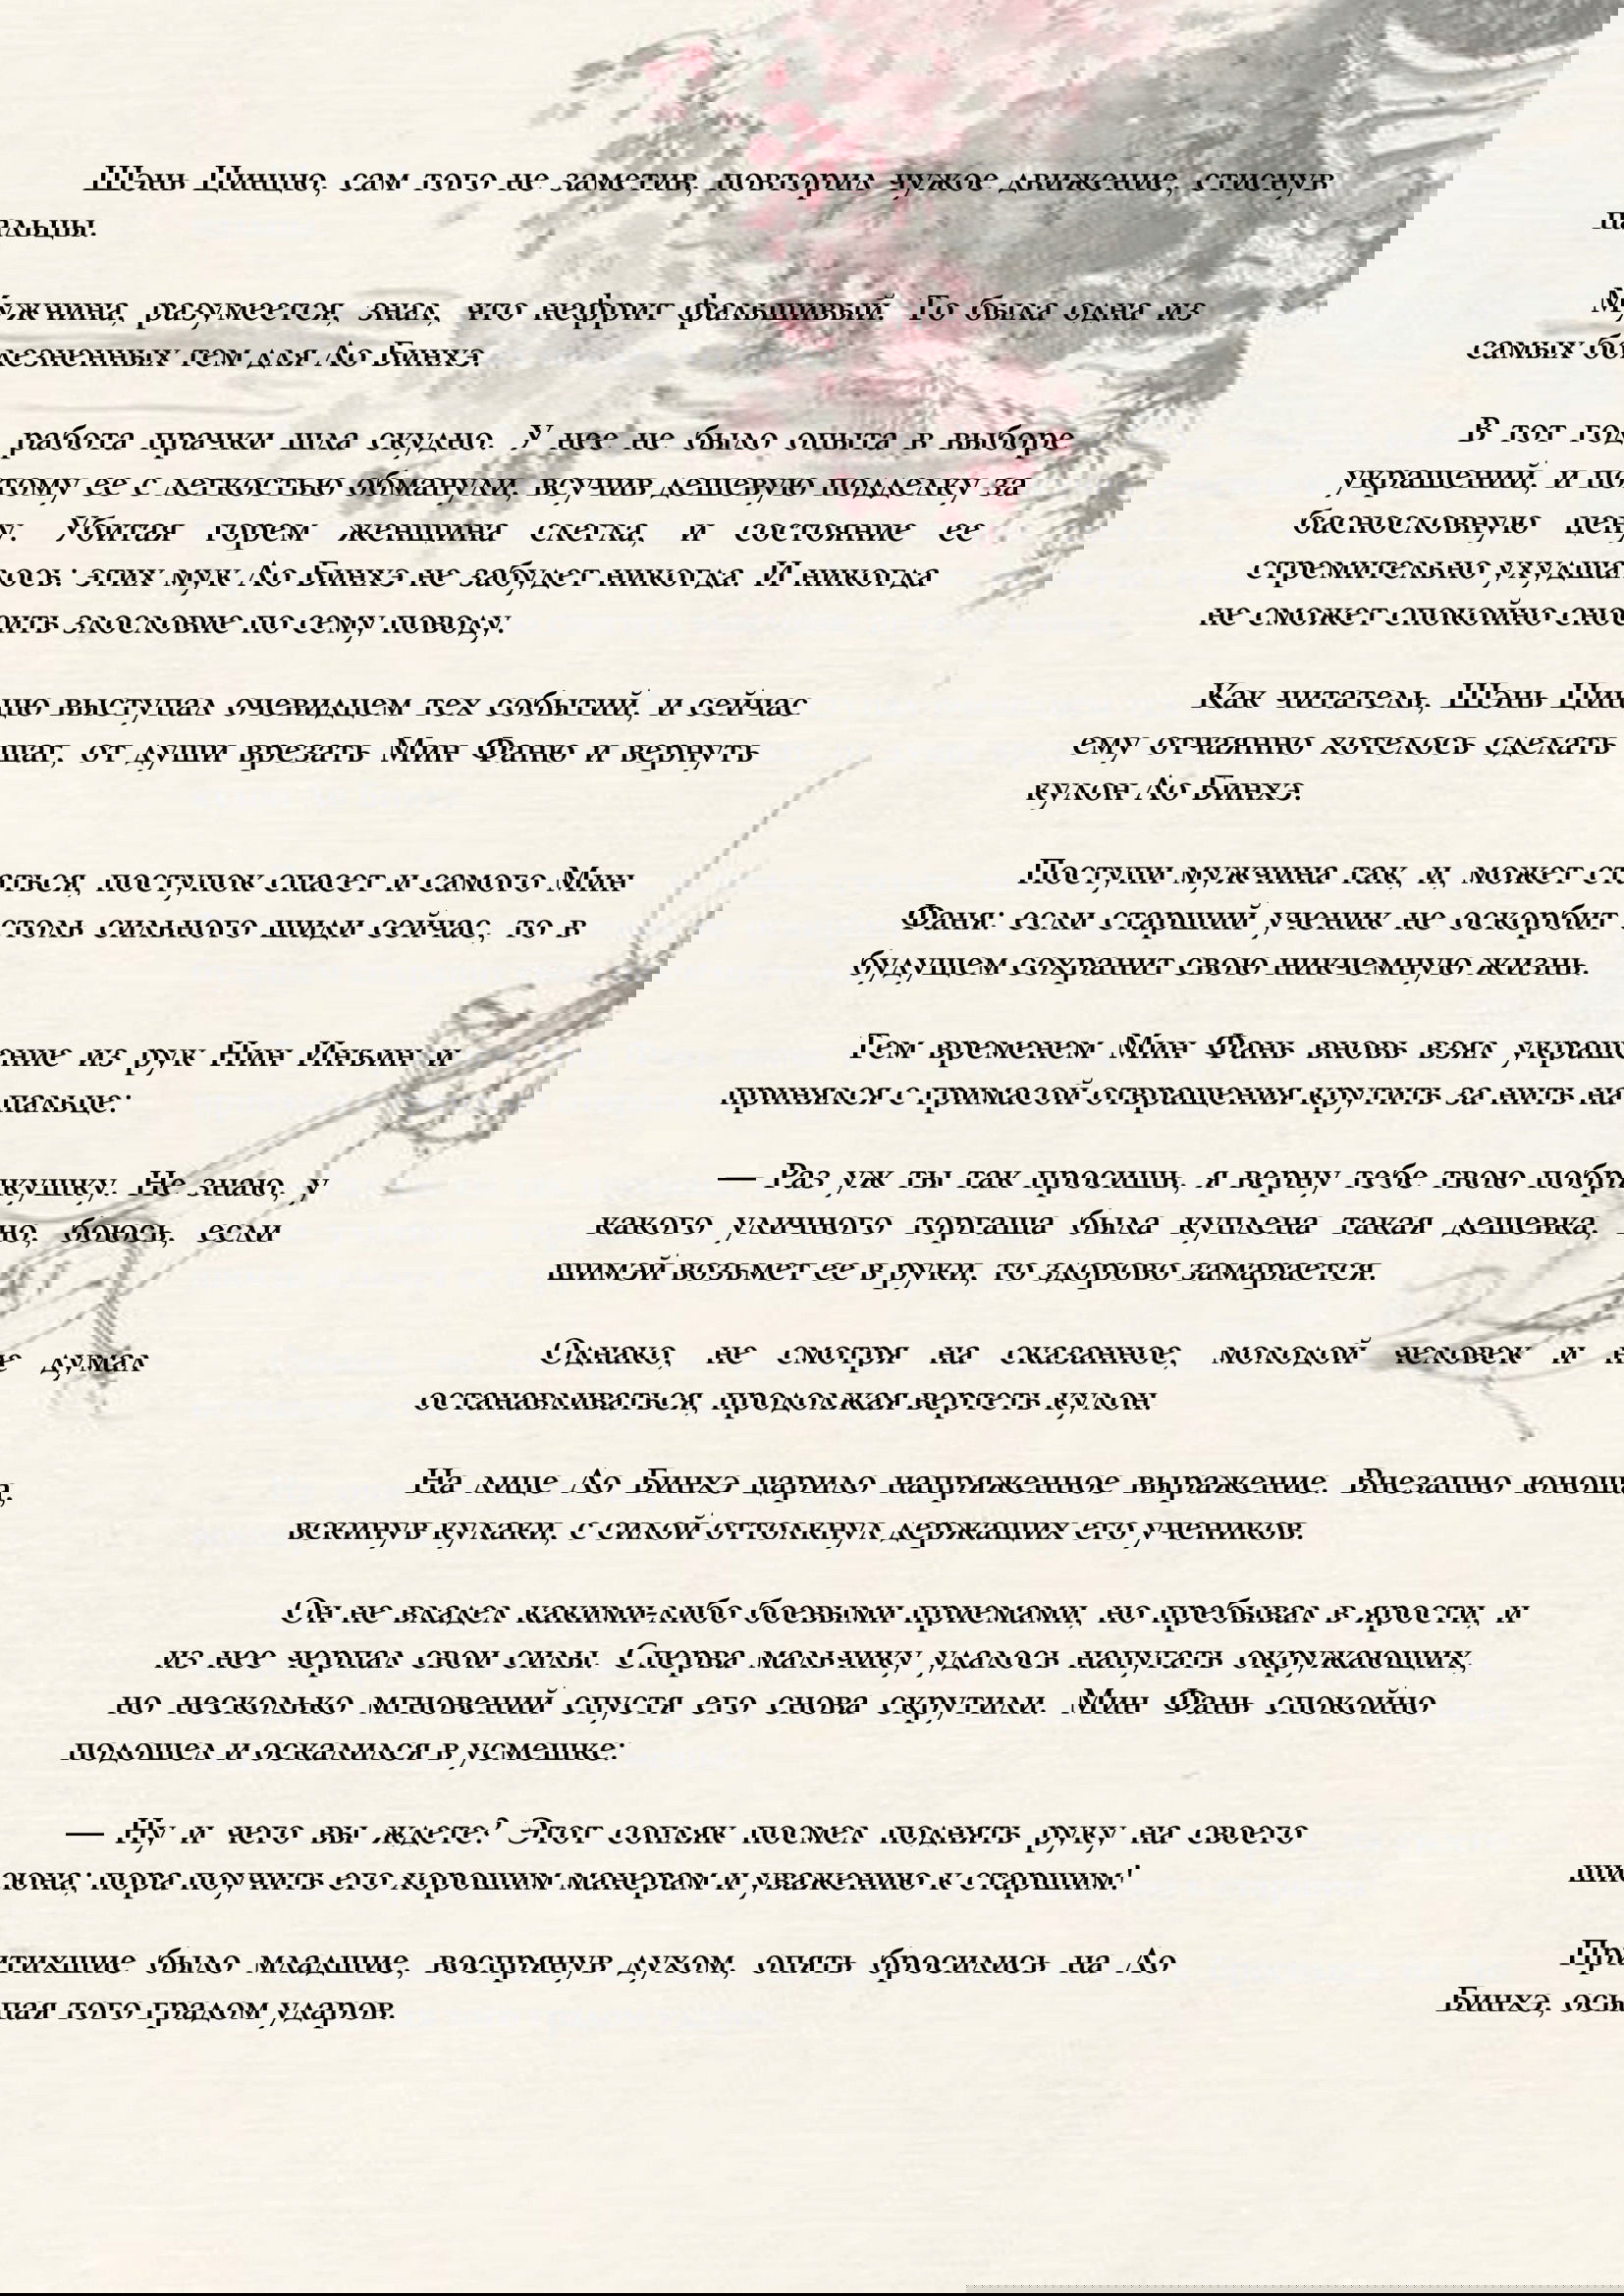 Шэнь Цинцю, сам того не заметив, повторил чужое движение, стиснув
пальцы.
Мужчина, разумеется, знал, что нефрит фальшивый. То была одна из
самых болезненных тем для Ло Бинхэ.
В тот год работа прачки шла скудно. У нее не было опыта в выборе
украшений, и потому ее с легкостью обманули, всучив дешевую подделку за
баснословную цену. Убитая горем женщина слегла, и состояние ее
стремительно ухудшалось: этих мук Ло Бинхэ не забудет никогда. И никогда
не сможет спокойно сносить злословие по сему поводу.
Как читатель, Шэнь Цинцю выступал очевидцем тех событий, и сейчас
ему отчаянно хотелось сделать шаг, от души врезать Мин Фаню и вернуть
кулон Ло Бинхэ.
Поступи мужчина так, и, может статься, поступок спасет и самого Мин
Фаня: если старший ученик не оскорбит столь сильного шиди сейчас, то в
будущем сохранит свою никчемную жизнь.
Тем временем Мин Фань вновь взял украшение из рук Нин Инъин и
принялся с гримасой отвращения крутить за нить на пальце:
— Раз уж ты так просишь, я верну тебе твою побрякушку. Не знаю, у
какого уличного торгаша была куплена такая дешевка, но, боюсь, если
шимэй возьмет ее в руки, то здорово замарается.
Однако, не смотря на сказанное, молодой человек и не думал
останавливаться, продолжая вертеть кулон.
На лице Ло Бинхэ царило напряженное выражение. Внезапно юноша,
вскинув кулаки, с силой оттолкнул держащих его учеников.
Он не владел какими-либо боевыми приемами, но пребывал в ярости, и
из нее черпал свои силы. Сперва мальчику удалось напугать окружающих,
но несколько мгновений спустя его снова скрутили. Мин Фань спокойно
подошел и оскалился в усмешке:
— Ну и чего вы ждете? Этот сопляк посмел поднять руку на своего
шисюна; пора поучить его хорошим манерам и уважению к старшим!
Притихшие было младшие, воспрянув духом, опять бросились на Ло
Бинхэ, осыпая того градом ударов.